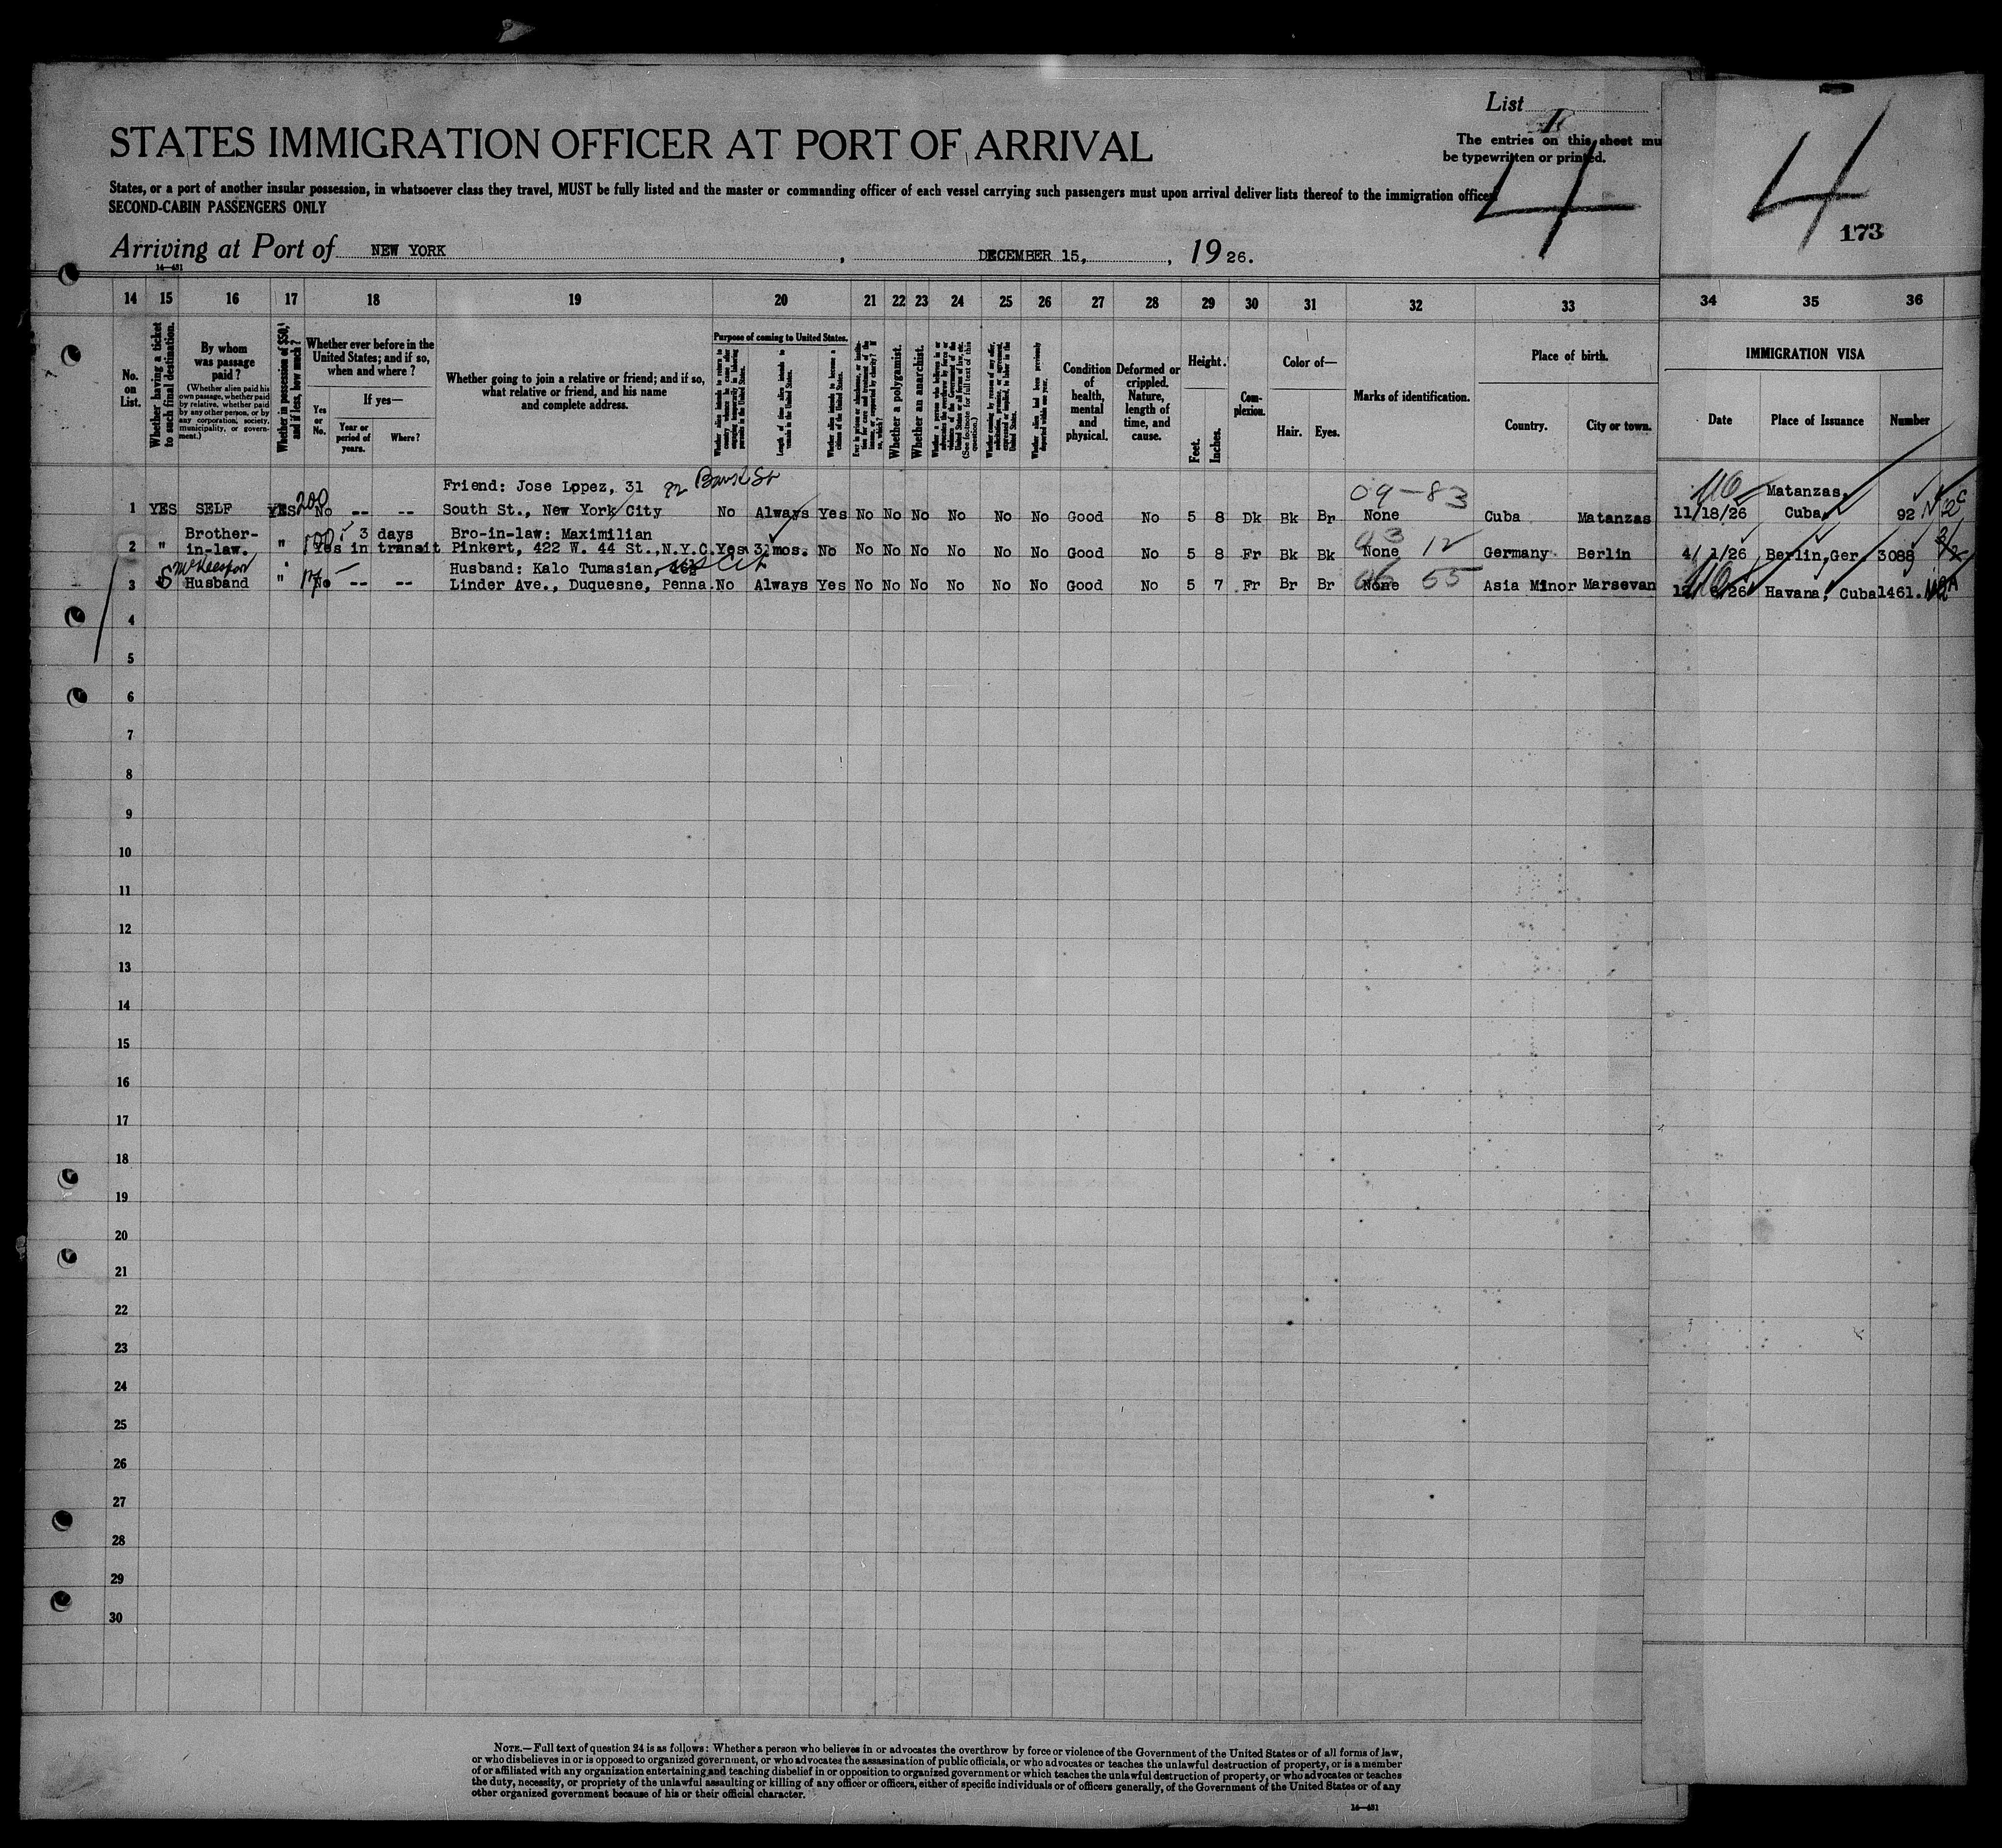 List
STATES IMMIGRATION OFFICER AT PORT OF ARRIVAL
The entries on this sheet mu
be typewritten or printed.
4
4
173
States, or a port of another insular possession, in whatsoever class they travel, MUST be fully listed and the master or commanding officer of each vessel carrying such passengers must upon arrival deliver lists thereof to the immigration officer
SECOND-CABIN PASSENGERS ONLY
Arriving at Port of NEW YORK , DECEMBER 15, , 19 26.
14—431
14 15 16 17 18 19 20 21 22 23 24 25 26 27 28 29 30 31 32 33 34 35 36
No. on List.
Whether having a ticket to such final destination.
By whom was passage paid?
(Whether alien paid his own passage, whether paid by relative, whether paid by any other person, or by any corporation, society, municipality, or government.)
Whether in possession of $50, and if less, how much?
Whether ever before in the United States; and if so, when and where?
Yes or No.
If yes—
Year or period of years.
Where?
Whether going to join a relative or friend; and if so, what relative or friend, and his name and complete address.
Purpose of coming to United States.
Length of time alien intends to remain in the United States.
Whether alien intends to become a citizen of the United States.
Whether a polygamist.
Whether an anarchist.
Condition of health, mental and physical.
Deformed or crippled. Nature, length of time, and cause.
Height.
Feet.
Inches.
Complexion.
Color of—
Hair.
Eyes.
Marks of identification.
Place of birth.
Country.
City or town.
IMMIGRATION VISA
Date
Place of Issuance
Number
Friend: Jose Lopez, 31 92 Bank St 09-83 Matanzas,
1 YES SELF YES 200 No -- -- South St., New York City No Always Yes No No No No No No Good No 5 8 Dk Bk Br None Cuba Matanzas 11/18/26 Cuba 92
Brother- 3 days Bro-in-law: Maximilian
2 " in-law. " 100 Yes in transit Pinkert, 422 W. 44 St.,N.Y.C. Yes 3 mos. No No No No No No No Good No 5 8 Fr Bk Bk None 12 Germany Berlin 4/ 1/26 Berlin,Ger. 3088
McKeesport Husband: Kalo Tumasian, 462 US Cit
3 Husband " No -- -- Linder Ave., Duquesne, Penna. No Always Yes No No No No No No Good No 5 7 Fr Br Br None 55 Asia Minor Marsevan /26 Havana, Cuba 1461.
4
5
6
7
8
9
10
11
12
13
14
15
16
17
18
19
20
21
22
23
24
25
26
27
28
29
30
NOTE.—Full text of question 24 is as follows: Whether a person who believes in or advocates the overthrow by force or violence of the Government of the United States or of all forms of law,
or who disbelieves in or is opposed to organized government, or who advocates the assassination of public officials, or who advocates or teaches the unlawful destruction of property, or is a member
of or affiliated with any organization entertaining and teaching disbelief in or opposition to organized government or which teaches the unlawful destruction of property, or who advocates or teaches
the duty, necessity, or propriety of the unlawful assaulting or killing of any officer or officers, either of specific individuals or of officers generally, of the Government of the United States or of any
other organized government because of his or their official character.
14—431